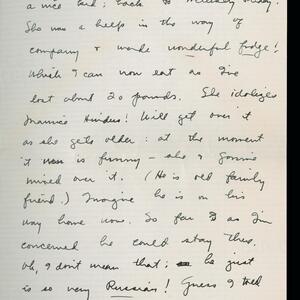 a nice kid; back to
She was a help in the way of
company & made wonderful fudge!
Which I can now eat as I've
lost about 20 pounds. She idolizes
Maurice Hindus! Will get over it
as she gets older: at the moment
it is funny - she &
mixed over it. (He is old family
friend.) Imagine he is on his
way home now. So far as I'm
concerned he could stay thus.
Oh, I don't mean that; he just
is so very Russian! Guess I told